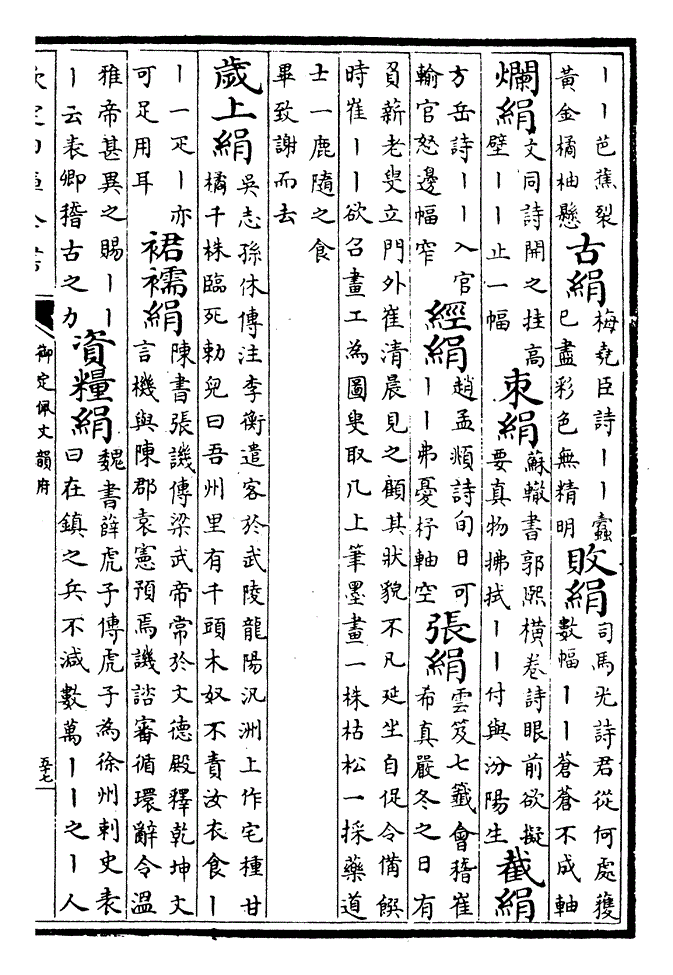 丨丨芭蕉裂黃金橘柚懸 古絹 梅堯臣詩丨丨蠹已盡彩色無精明 敗絹 司馬光詩君從何處獲數幅丨丨蒼蒼不成軸
爛絹 文同詩開之挂高壁丨丨止一幅 束絹 蘇轍書郭熙橫卷詩眼前欲擬要真物拂拭丨丨付與汾陽生 截絹
方岳詩丨丨入官輸官怒邊幅窄 經絹 趙孟頫詩旬日可丨丨弗憂杼軸空 張絹 雲笈七籤會稽崔希真嚴冬之日有
負薪老叟立門外崔清晨見之顧其狀貌不凡延坐自促令備饌
時崔丨丨欲召畫工為圖叟取几上筆墨畫一株枯松一採藥道
士一鹿隨之食
畢致謝而去
歲上絹 吳志孫休傳注李衡遣客於武陵龍陽汎洲上作宅種甘橘千株臨死勅兒曰吾州里有千頭木奴不責汝衣食丨
丨一疋丨亦可足用耳 裙襦絹 陳書張譏傳梁武帝常於文德殿釋乾坤文言機與陳郡袁憲預焉譏諮審循環辭令溫
雅帝甚異之賜丨丨丨云表卿稽古之力 資糧絹 魏書薛虎子傳虎子為徐州刺史表曰在鎮之兵不減數萬丨丨之丨人
欽定四庫全書
御定佩文韻府
五十七